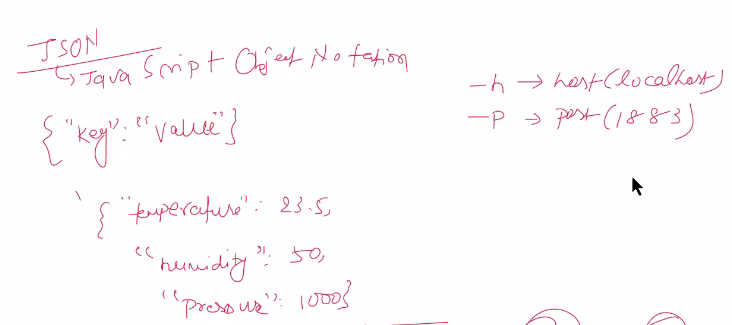 JSON
↳ Java Script Object Notation
{"key": "value"}
{"temperature": 23.5,
"humidity": 50,
"pressure": 1000}
-h → host(localhost)
-p → port(1883)